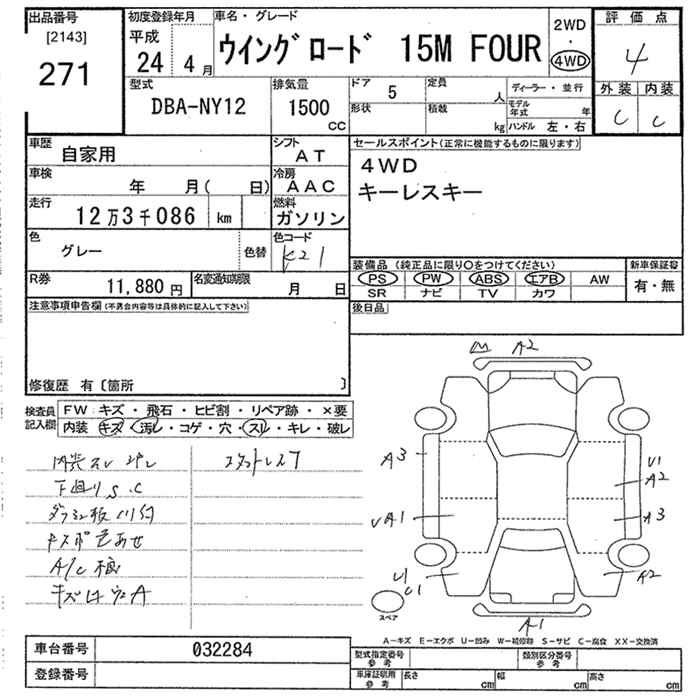 出品番号
[2143]
271
初度登録年月
平成
24 4月
車名・グレード
ウイングロード 15M FOUR
2WD
・
4WD
評価点
4
外装 内装
C C
型式
DBA-NY12
排気量
1500
CC
ドア 5
定員 人
形状
積載 kg
ディーラー・並行
モデル年式 年
ハンドル 左・右
車歴
自家用
シフト
AT
車検
年 月( 日)
冷房
AAC
走行
12万3千086 km
燃料
ガソリン
色
グレー
色替
色コード
K21
R券
11,880 円
名変通知期限
月 日
セールスポイント(正常に機能するものに限ります)
4WD
キーレスキー
装備品 (純正品に限り○をつけてください)
PS PW ABS エアB AW
SR ナビ TV カワ
新車保証書
有・無
後日品
注意事項申告欄 (不具合内容等は具体的に記入して下さい)
修復歴 有〔箇所 〕
検査員記入欄
FW: キズ・飛石・ヒビ割・リペア跡・×要
内装 キズ・汚レ・コゲ・穴・スレ・キレ・破レ
下回りS.C
キズ
A2
A3
U1
A2
A3
A1
U1
A2
A1
スペア
A-キズ E-エクボ U-凹み W-補修跡 S-サビ C-腐食 XX-交換済
車台番号
032284
登録番号
型式指定番号
参考
類別区分番号
参考
車庫証明用
参考
長さ cm
幅 cm
高さ cm